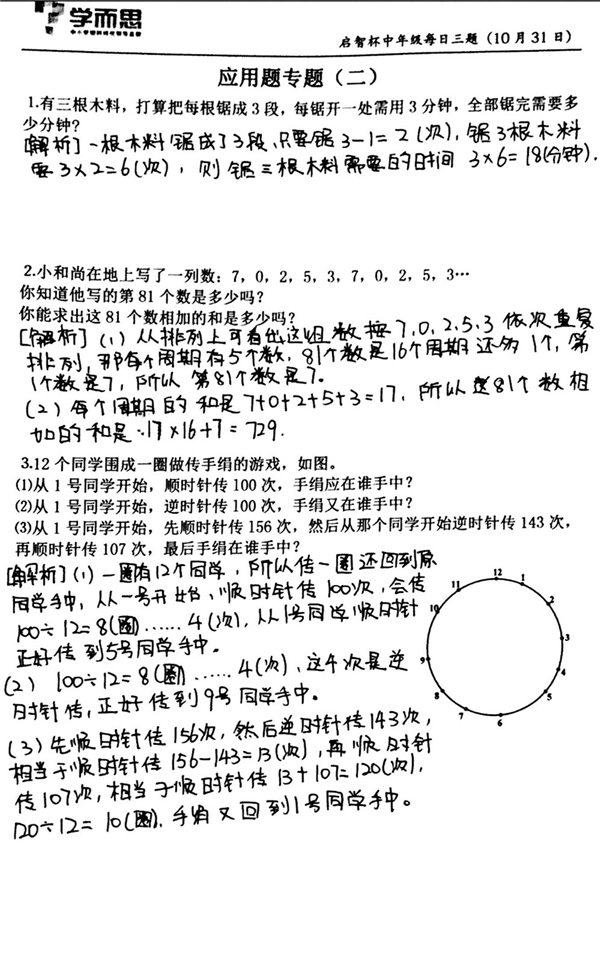 学而思
启智杯中年级每日三题（10月31日）
应用题专题（二）
1.有三根木料，打算把每根锯成3段，每锯开一处需用3分钟，全部锯完需要多
少分钟？
[解析]一根木料锯成了3段，只要锯3-1=2(次)，锯3根木料
要3×2=6(次)，则锯三根木料需要的时间 3×6=18(分钟).
2.小和尚在地上写了一列数：7，0，2，5，3，7，0，2，5，3…
你知道他写的第81个数是多少吗？
你能求出这81个数相加的和是多少吗？
[解析](1)从排列上可看出这组数按7,0,2,5,3依次重复
排列，那每个周期有5个数，81个数是16个周期还多1个，第
1个数是7，所以第81个数是7.
(2)每个周期的和是7+0+2+5+3=17，所以这81个数相
加的和是:17×16+7=729.
3.12个同学围成一圈做传手绢的游戏，如图。
⑴从1号同学开始，顺时针传100次，手绢应在谁手中？
⑵从1号同学开始，逆时针传100次，手绢又在谁手中？
⑶从1号同学开始，先顺时针传156次，然后从那个同学开始逆时针传143次，
再顺时针传107次，最后手绢在谁手中？
[解析](1)一圈有12个同学，所以传一圈还回到原
同学手中，从一号开始，顺时针传100次，会传
100÷12=8(圈)……4(次)，从1号同学顺时针
正好传到5号同学手中.
(2) 100÷12=8(圈)……4(次)，这4次是逆
时针传，正好传到9号同学手中。
(3)先顺时针传156次，然后逆时针传143次，
相当于顺时针传156-143=13(次)，再顺时针
传107次，相当于顺时针传13+107=120(次)，
120÷12=10(圈)，手绢又回到1号同学手中。
12
1
2
3
4
5
6
7
8
9
10
11